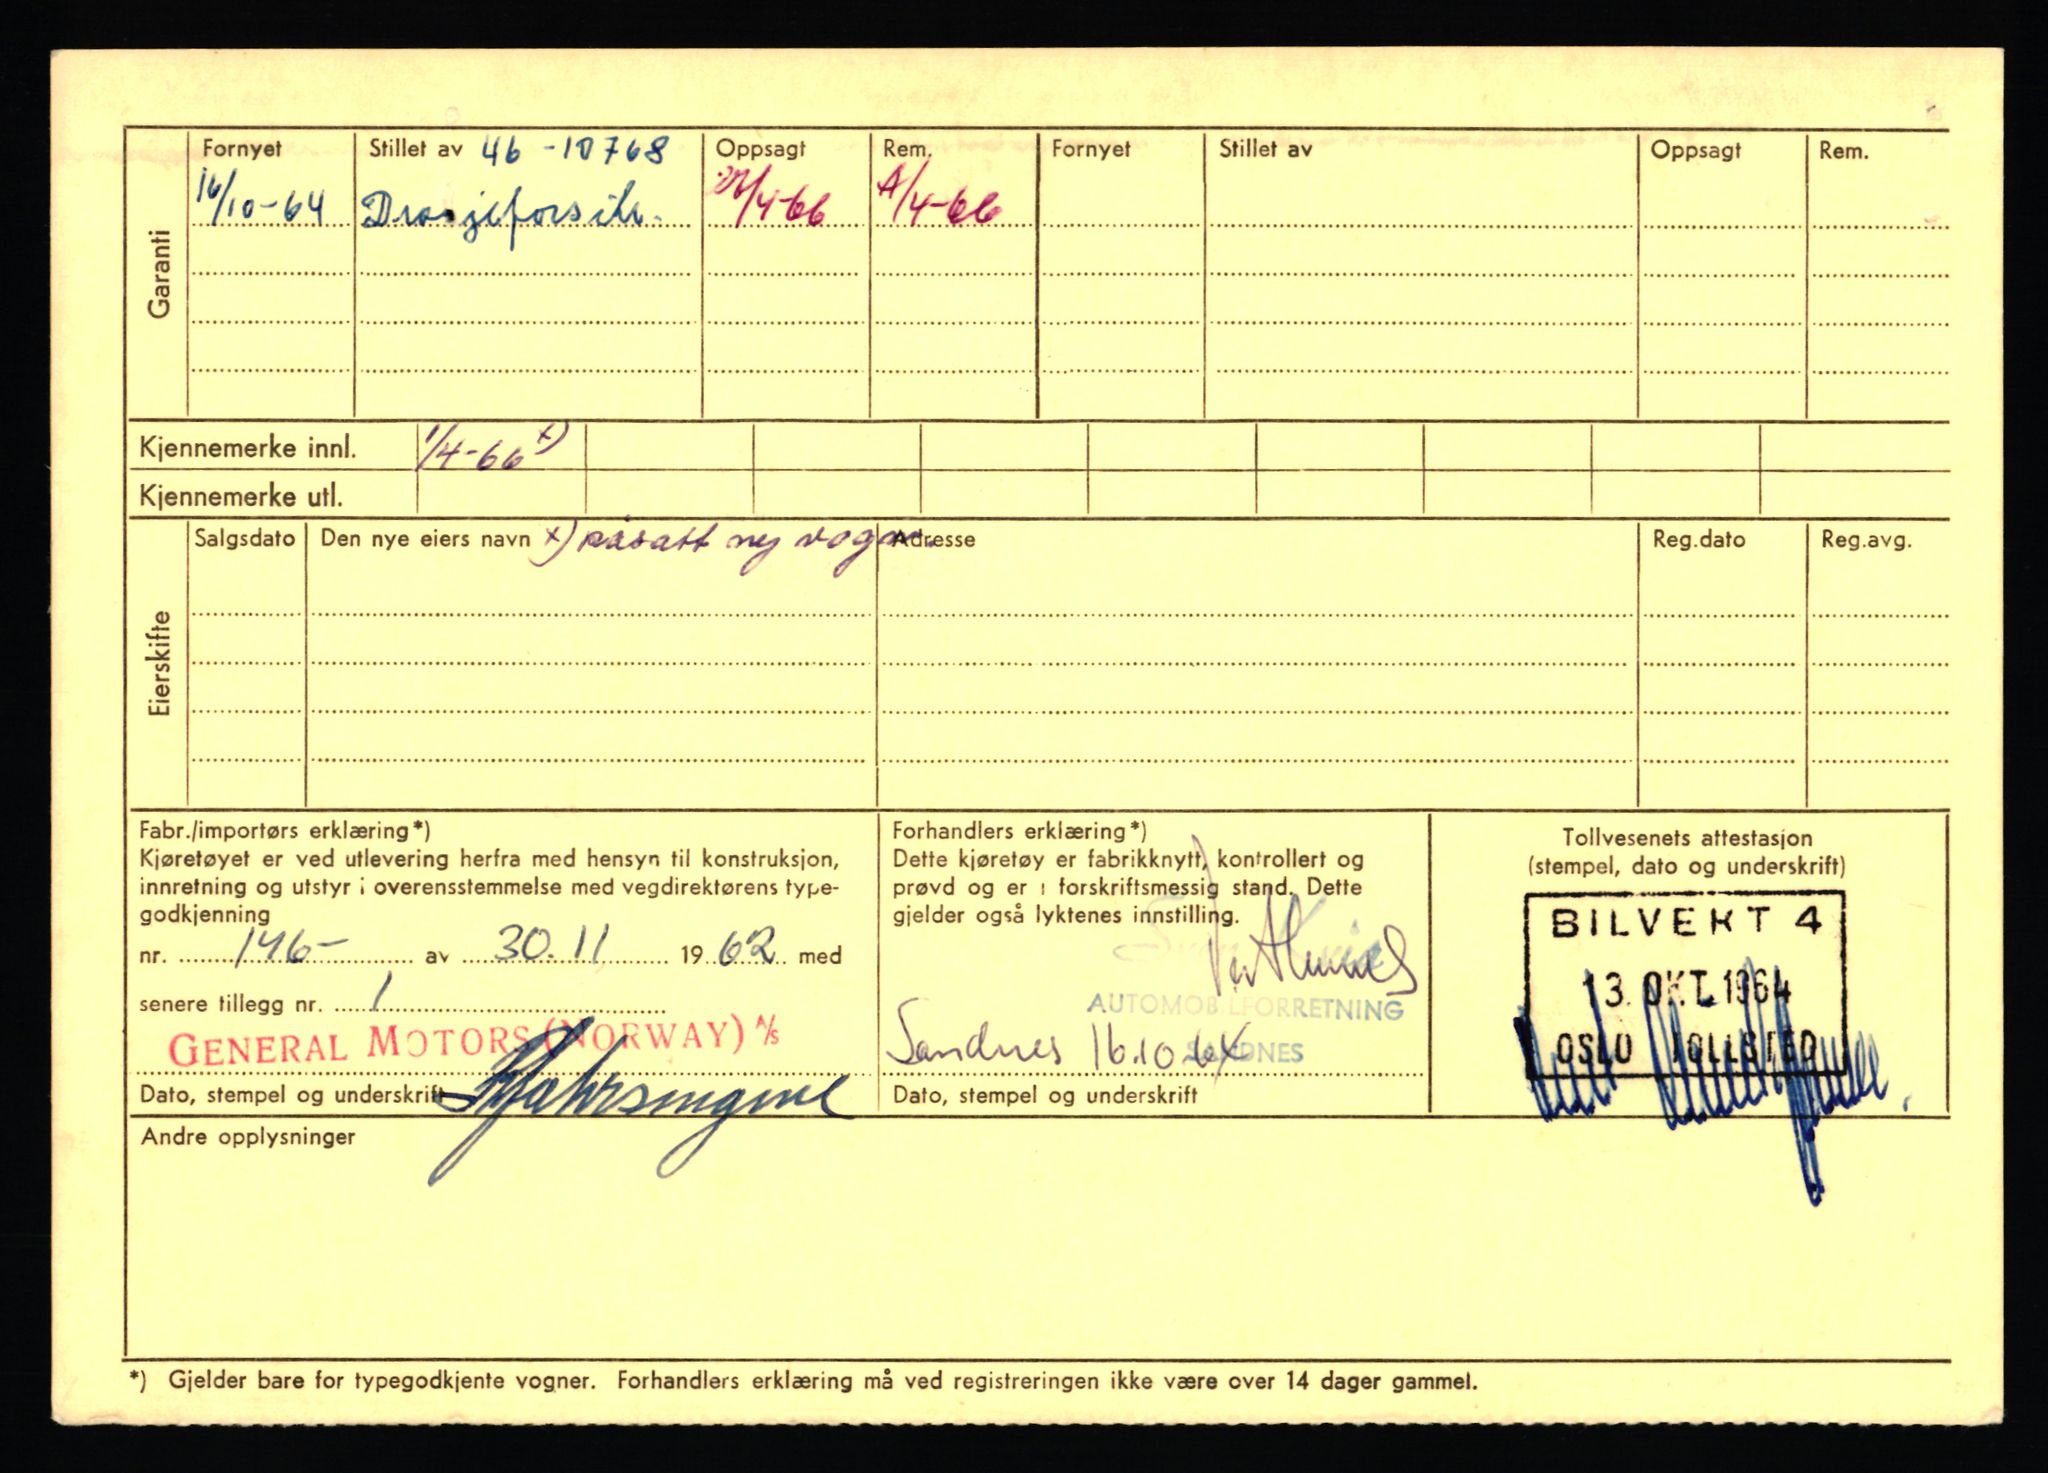 Garanti
Fornyet Stillet av 46-10768 Oppsagt Rem. Fornyet Stillet av Oppsagt Rem.
16/10-64 Drosjeforsikr. /4-66 /4-66
Kjennemerke innl. 1/4-66 x)
Kjennemerke utl.
Eierskifte
Salgsdato Den nye eiers navn x) påsatt ny vogn. Adresse Reg.dato Reg.avg.
Fabr./importørs erklæring*)
Kjøretøyet er ved utlevering herfra med hensyn til konstruksjon,
innretning og utstyr i overensstemmelse med vegdirektørens type-
godkjenning
nr. 146- av 30.11 1962 med
senere tillegg nr. 1
GENERAL MOTORS (NORWAY) A/S
Dato, stempel og underskrift
Forhandlers erklæring*)
Dette kjøretøy er fabrikknytt, kontrollert og
prøvd og er i forskriftsmessig stand. Dette
gjelder også lyktenes innstilling.
AUTOMOBILFORRETNING
SANDNES
Sandnes 16.10.64
Dato, stempel og underskrift
Tollvesenets attestasjon
(stempel, dato og underskrift)
BILVEKT 4
13. OKT. 1964
OSLO TOLLSTED
Andre opplysninger
*) Gjelder bare for typegodkjente vogner. Forhandlers erklæring må ved registreringen ikke være over 14 dager gammel.